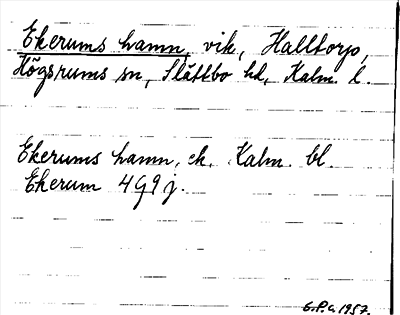 Ekerums hamn, vik, Halltorp,
Högsrums sn, Slättbo hd, Kalm. l.
Ekerums hamn, ek. Kalm. bl.
Ekerum 4G9j.
G.P.G. 1957.